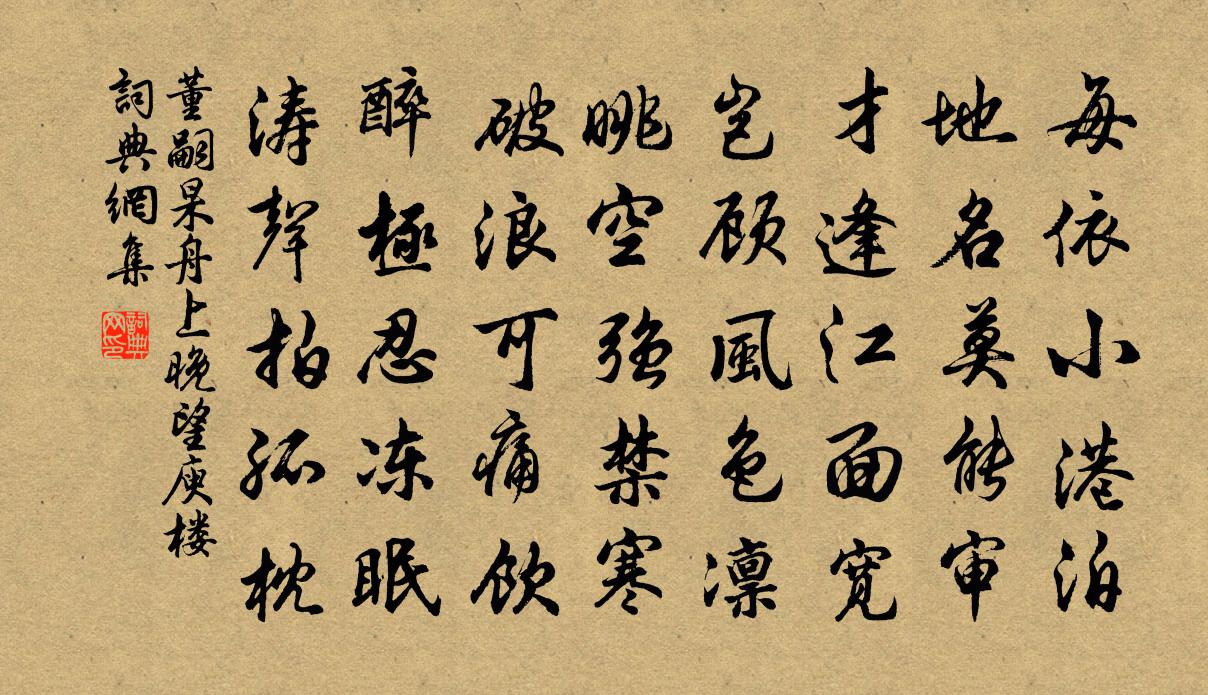 每依小港泊
地名莫能审
才逢江面宽
岂顾風色凛
眺空强禁寒
破浪可痛饮
醉極忍冻眠
涛聲拍孤枕
董嗣杲舟上晚望庾楼
詞典網集
詞典网印